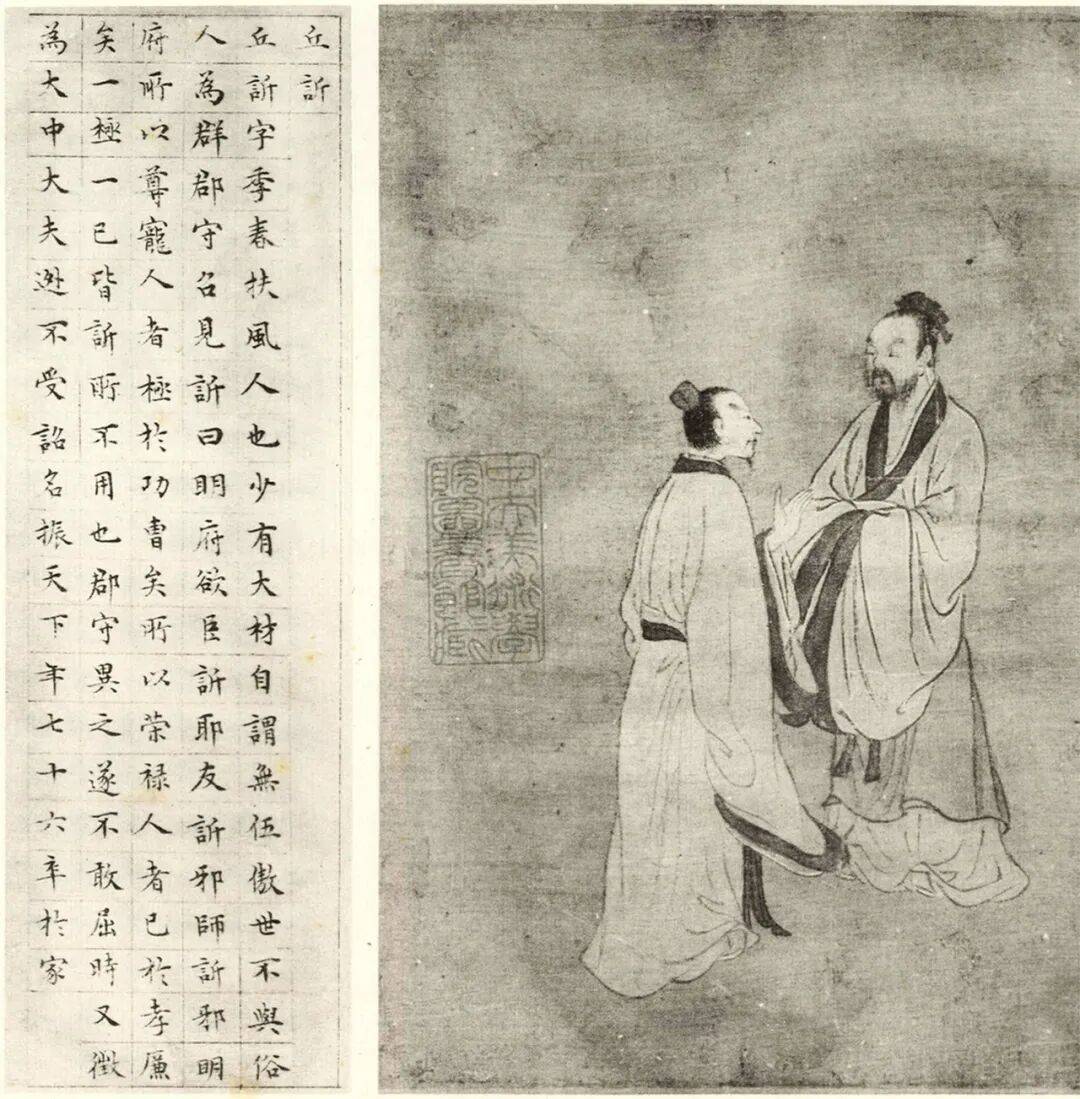 丘訢
丘訢字季春扶風人也少有大材自謂無伍傲世不與俗
人為群郡守召見訢曰明府欲臣訢耶友訢邪師訢邪明
府所以尊寵人者極於功曹矣所以荣禄人者已於孝廉
矣一極一已皆訢所不用也郡守異之遂不敢屈時又徵
為大中大夫逊不受詔名振天下年七十六卒於家
中央美術學
院圖書館藏